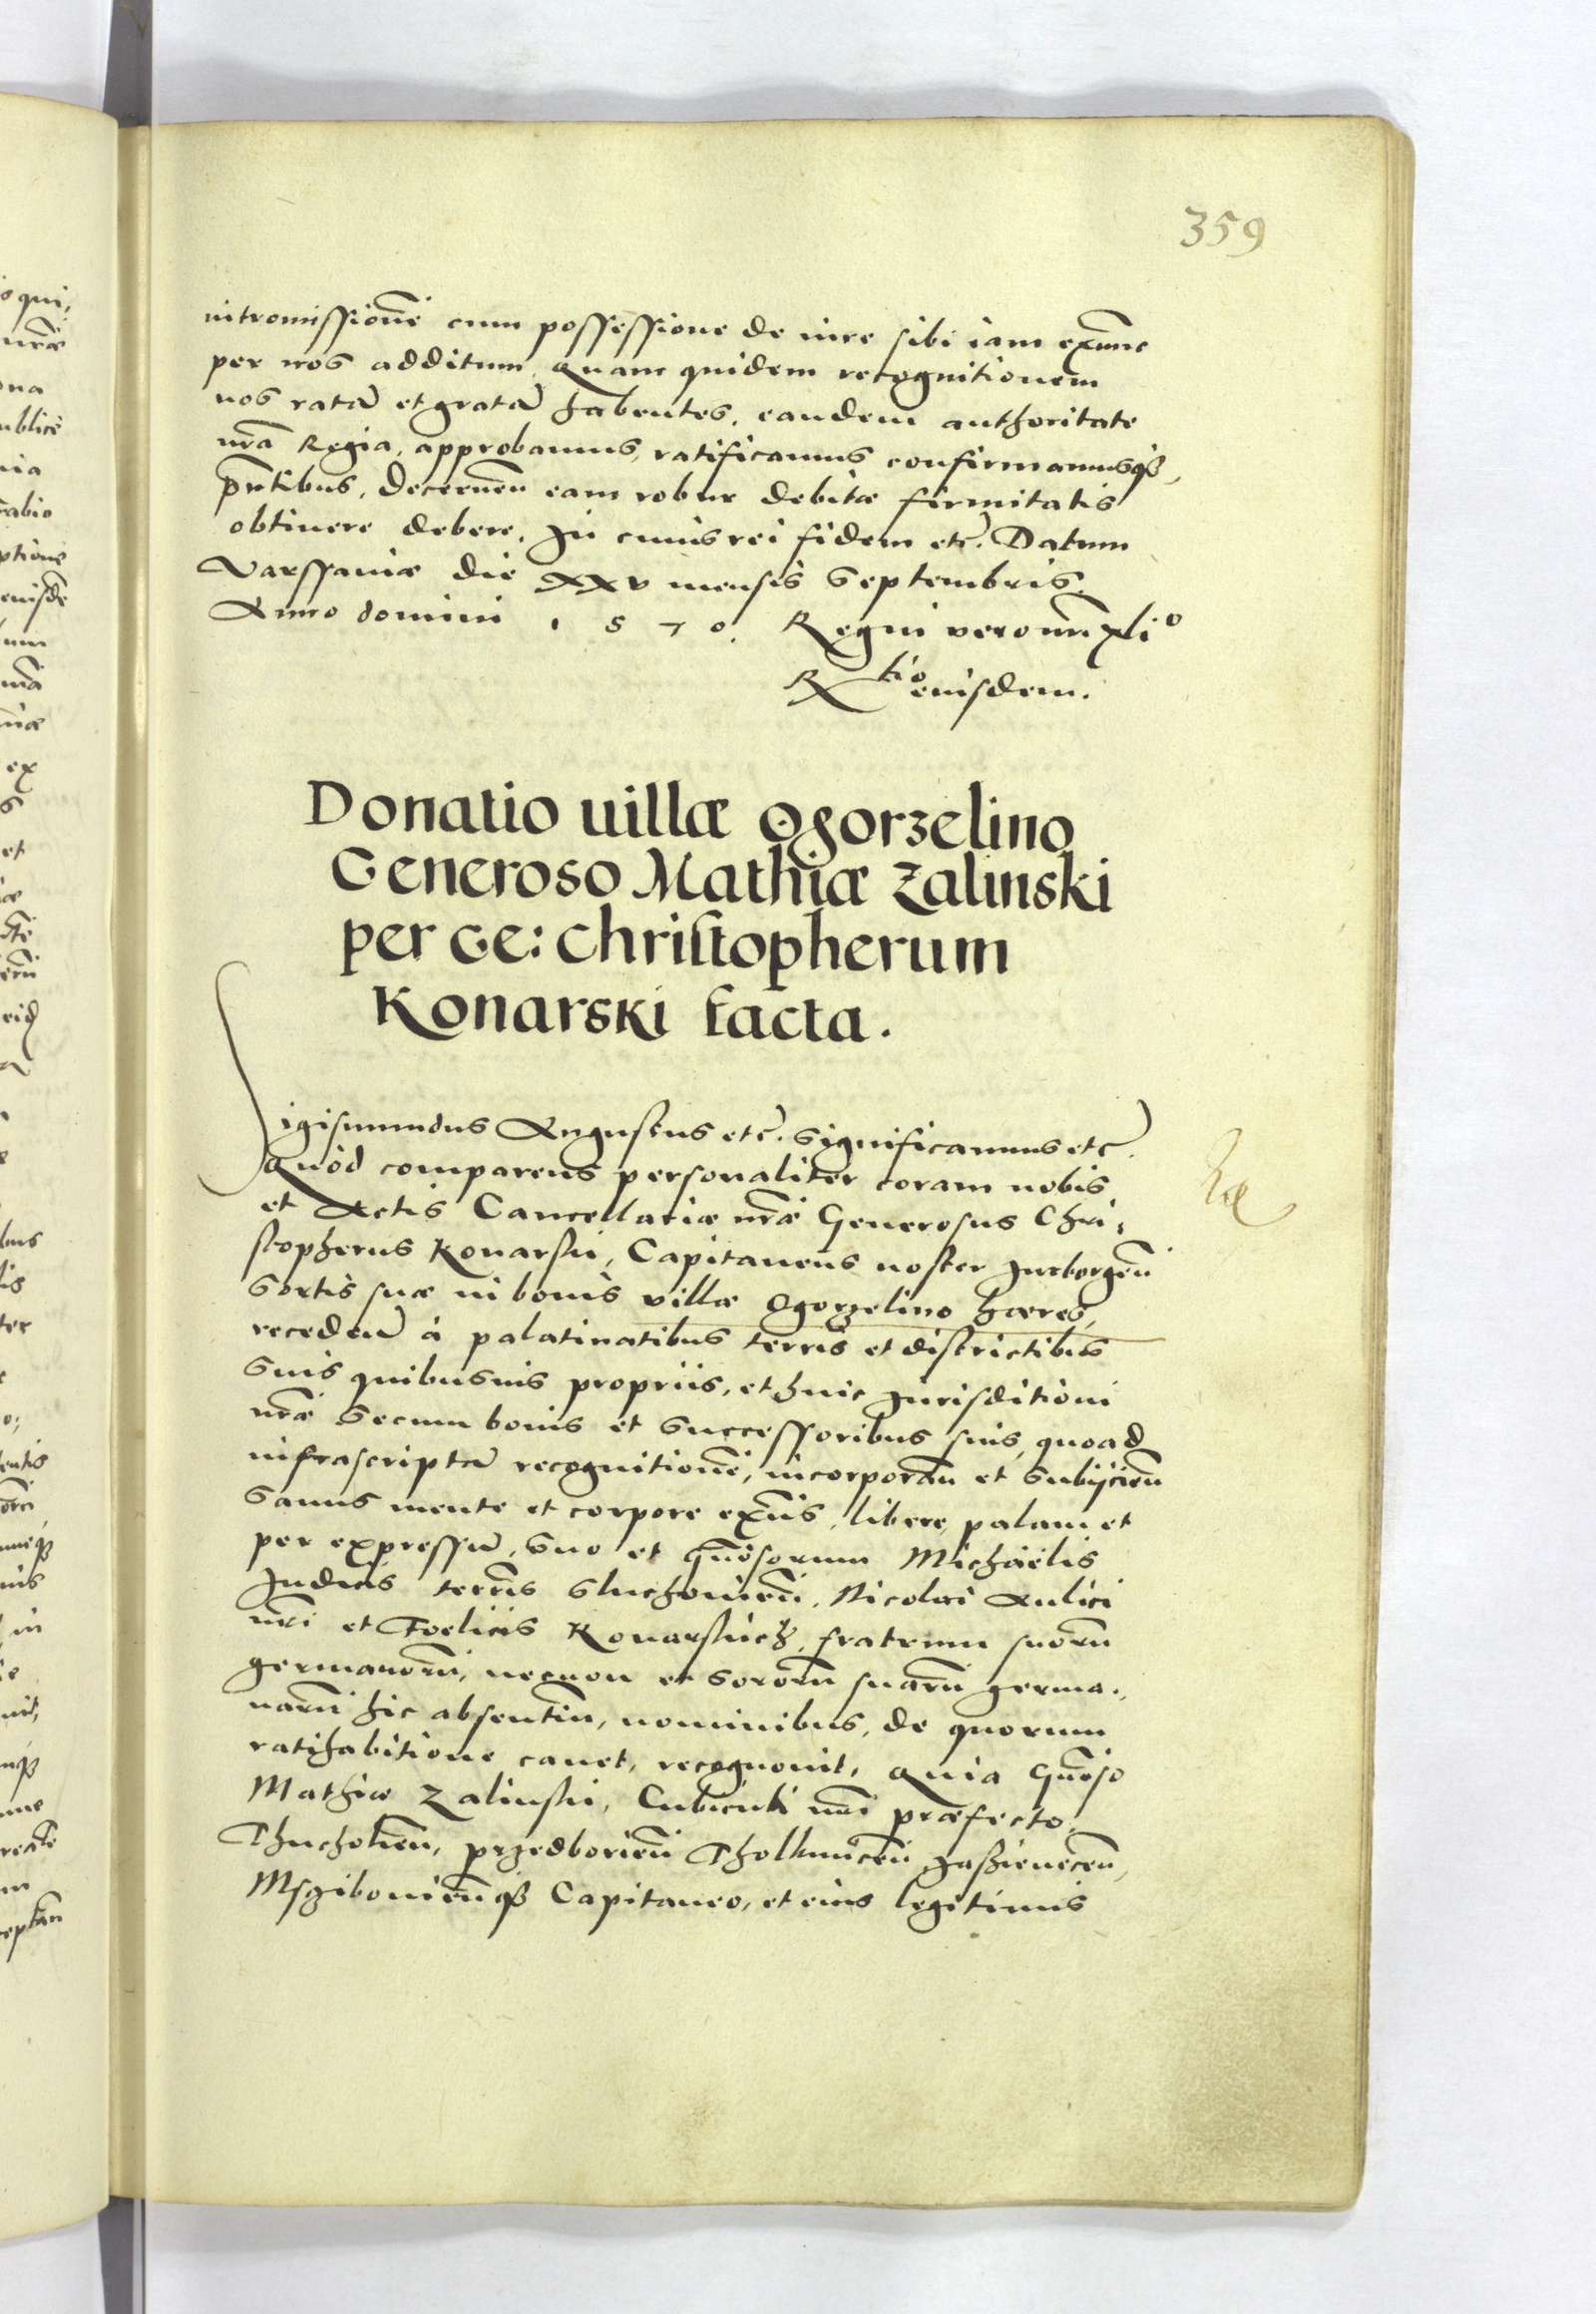 359
intromissionē cum possessione de iure sibi iam extunc
per nos additum. Quam quidem recognitionem
nos ratā et gratā habentes, eandem authoritate
nrā Regia, approbamus, ratificamus confirmamusqȝ,
pn̄tibus, decernen̄ eam robur debitæ firmitatis
obtinere debere. In cuius rei fidem etc̄. Datum
Varssaviæ die XXV mensis Septembris.
Anno domini 1570. Regni vero nrī xli°
Rtio eiusdem.
Donatio villæ Ogorzelino
Generoso Mathiæ Zalinski
per Ge: Christopherum
Konarski facta.
Sigismundus Augustus etc̄. Significamus etc̄.
Quòd comparens personaliter coram nobis,
et Actis Cancellariæ nrǣ Generosus Chri-
stopherus Konarski, Capitaneus noster Jurborgen̄
Sortis suæ in bonis villæ Ogorzelino hæres,
recedeñ à palatinatibus terris et districtibus
Suis quibusuis propriis, et huic Jurisditioni
nrǣ Secum bonis et Successoribus suis, quoad
infrascriptā recognitionē, incorporan̄ et Subijcien̄
Sanus mente et corpore ex̄ns, libere, palam et
per expressū, Suo et Gn̄osorum Michaëlis
Judicis terrīs Sluchovien̄, Nicolai Aulici
nrī et Foelicis Konarskich, fratrum suorū
germanorū, necnon et Sororū suarū germa-
narū hic absentiū, nominibus, de quorum
ratihabitione cavet, recognovit, Quia Gn̄oso
Mathiæ Zalinski, Cubiculi nrī præfecto,
Thucholien̄, przedborien̄ Tholkmicen̄ Jaszienecen̄,
Mszibovien̄qȝ Capitaneo, et eius legitimis